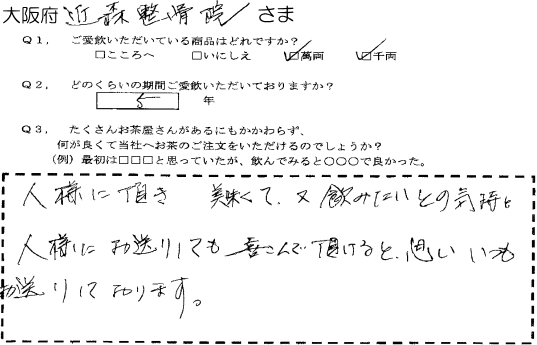 大阪府 近森整骨院 さま
Q1. ご愛飲いただいている商品はどれですか?
□こころへ □いにしえ ☑萬両 ☑千両
Q2. どのくらいの期間ご愛飲いただいておりますか?
5 年
Q3. たくさんお茶屋さんがあるにもかかわらず、
何が良くて当社へお茶のご注文をいただけるのでしょうか?
(例)最初は□□□と思っていたが、飲んでみると○○○で良かった。
人様に頂き 美味くて、又飲みたいとの気持と
人様にお送りしても喜こんで頂けると思い いつも
お送りしております。